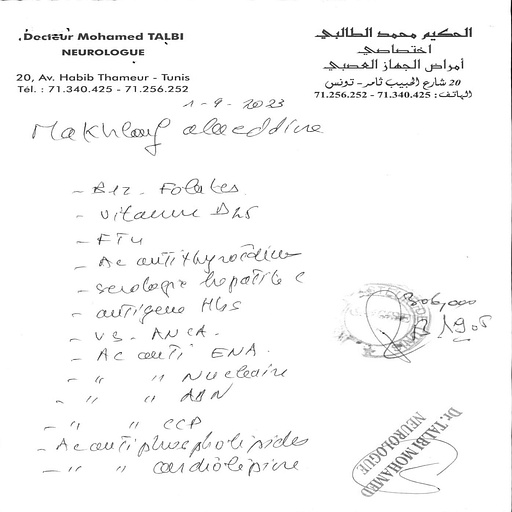 Docteur Mohamed TALBI
NEUROLOGUE
20, Av. Habib Thameur - Tunis
Tél. : 71.340.425 - 71.256.252
الحكيم محمد الطالبي
اختصاصي
أمراض الجهاز العصبي
20 شارع الحبيب ثامر - تونس
الهاتف : 71.340.425 - 71.256.252
1-9-2023
Makhlouf alaeddine
- B12 - Folates
- Vitamine D25
- FT4
- Ac antithyroïdiens
- serologie hepatite C
- antigene HBs
- VS - ANCA.
- Ac anti ENA.
- " " Nucleaire
- " " ADN
- " " CCP
- Ac antiphospholipides
- " " cardiolipine
306,000
B 1905
Dr. TALBI MOHAMED
NEUROLOGUE